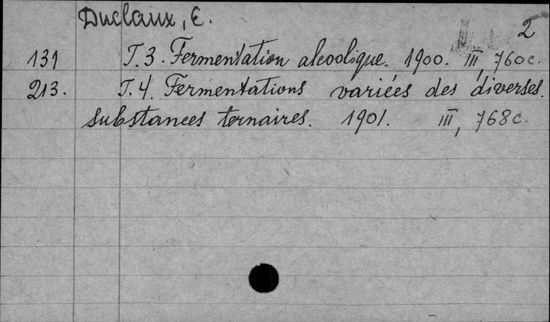 Duclaux, E.
2
131 T. 3. Fermentation alcoolique. 1900. III 760c.
213. T. 4. Fermentations variées des diverses.
substances ternaires. 1901. III, 768c.